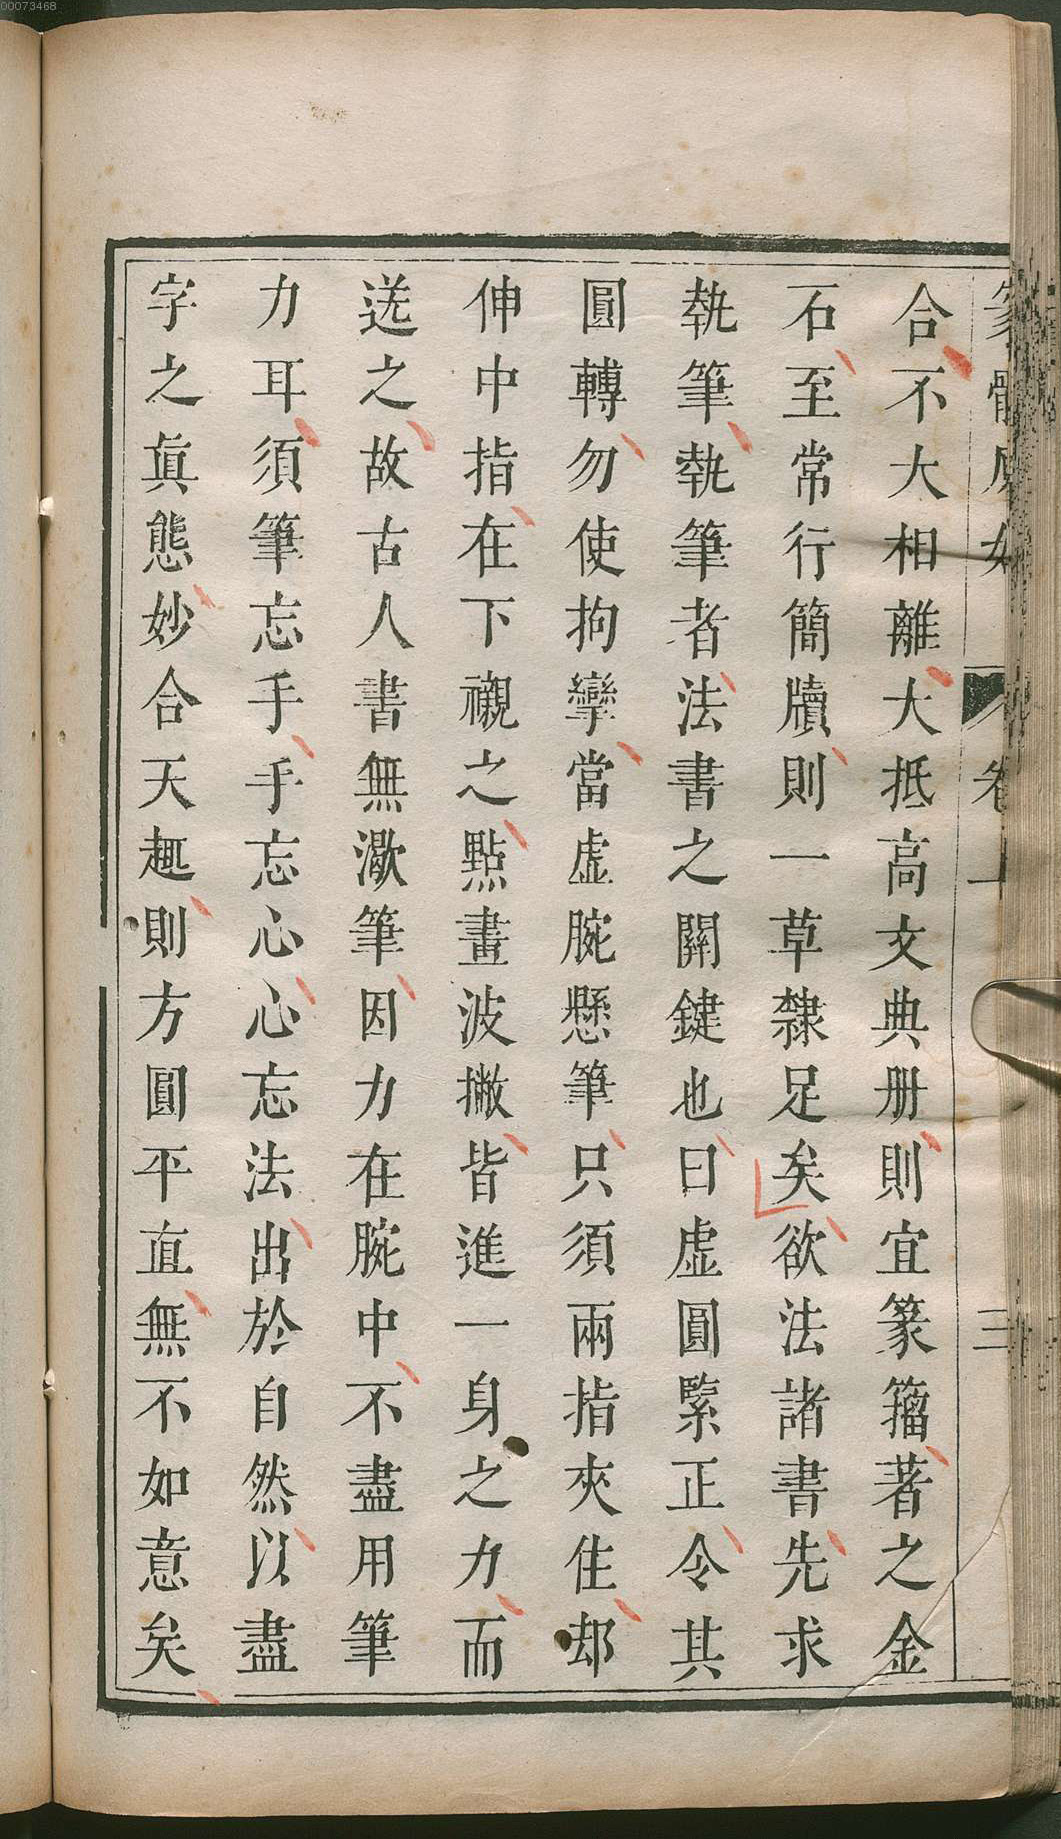 00073468
合不大相離大抵高文典册則宜篆籒著之金
石至常行簡牘則一草隸足矣欲法諸書先求
執筆執筆者法書之關鍵也曰虛圓緊正令其
圓轉勿使拘攣當虛腕懸筆只須兩指夾住却
伸中指在下襯之點畫波撇皆進一身之力而
送之故古人書無潑筆因力在腕中不盡用筆
力耳須筆忘手手忘心心忘法出於自然以盡
字之眞態妙合天趣則方圓平直無不如意矣